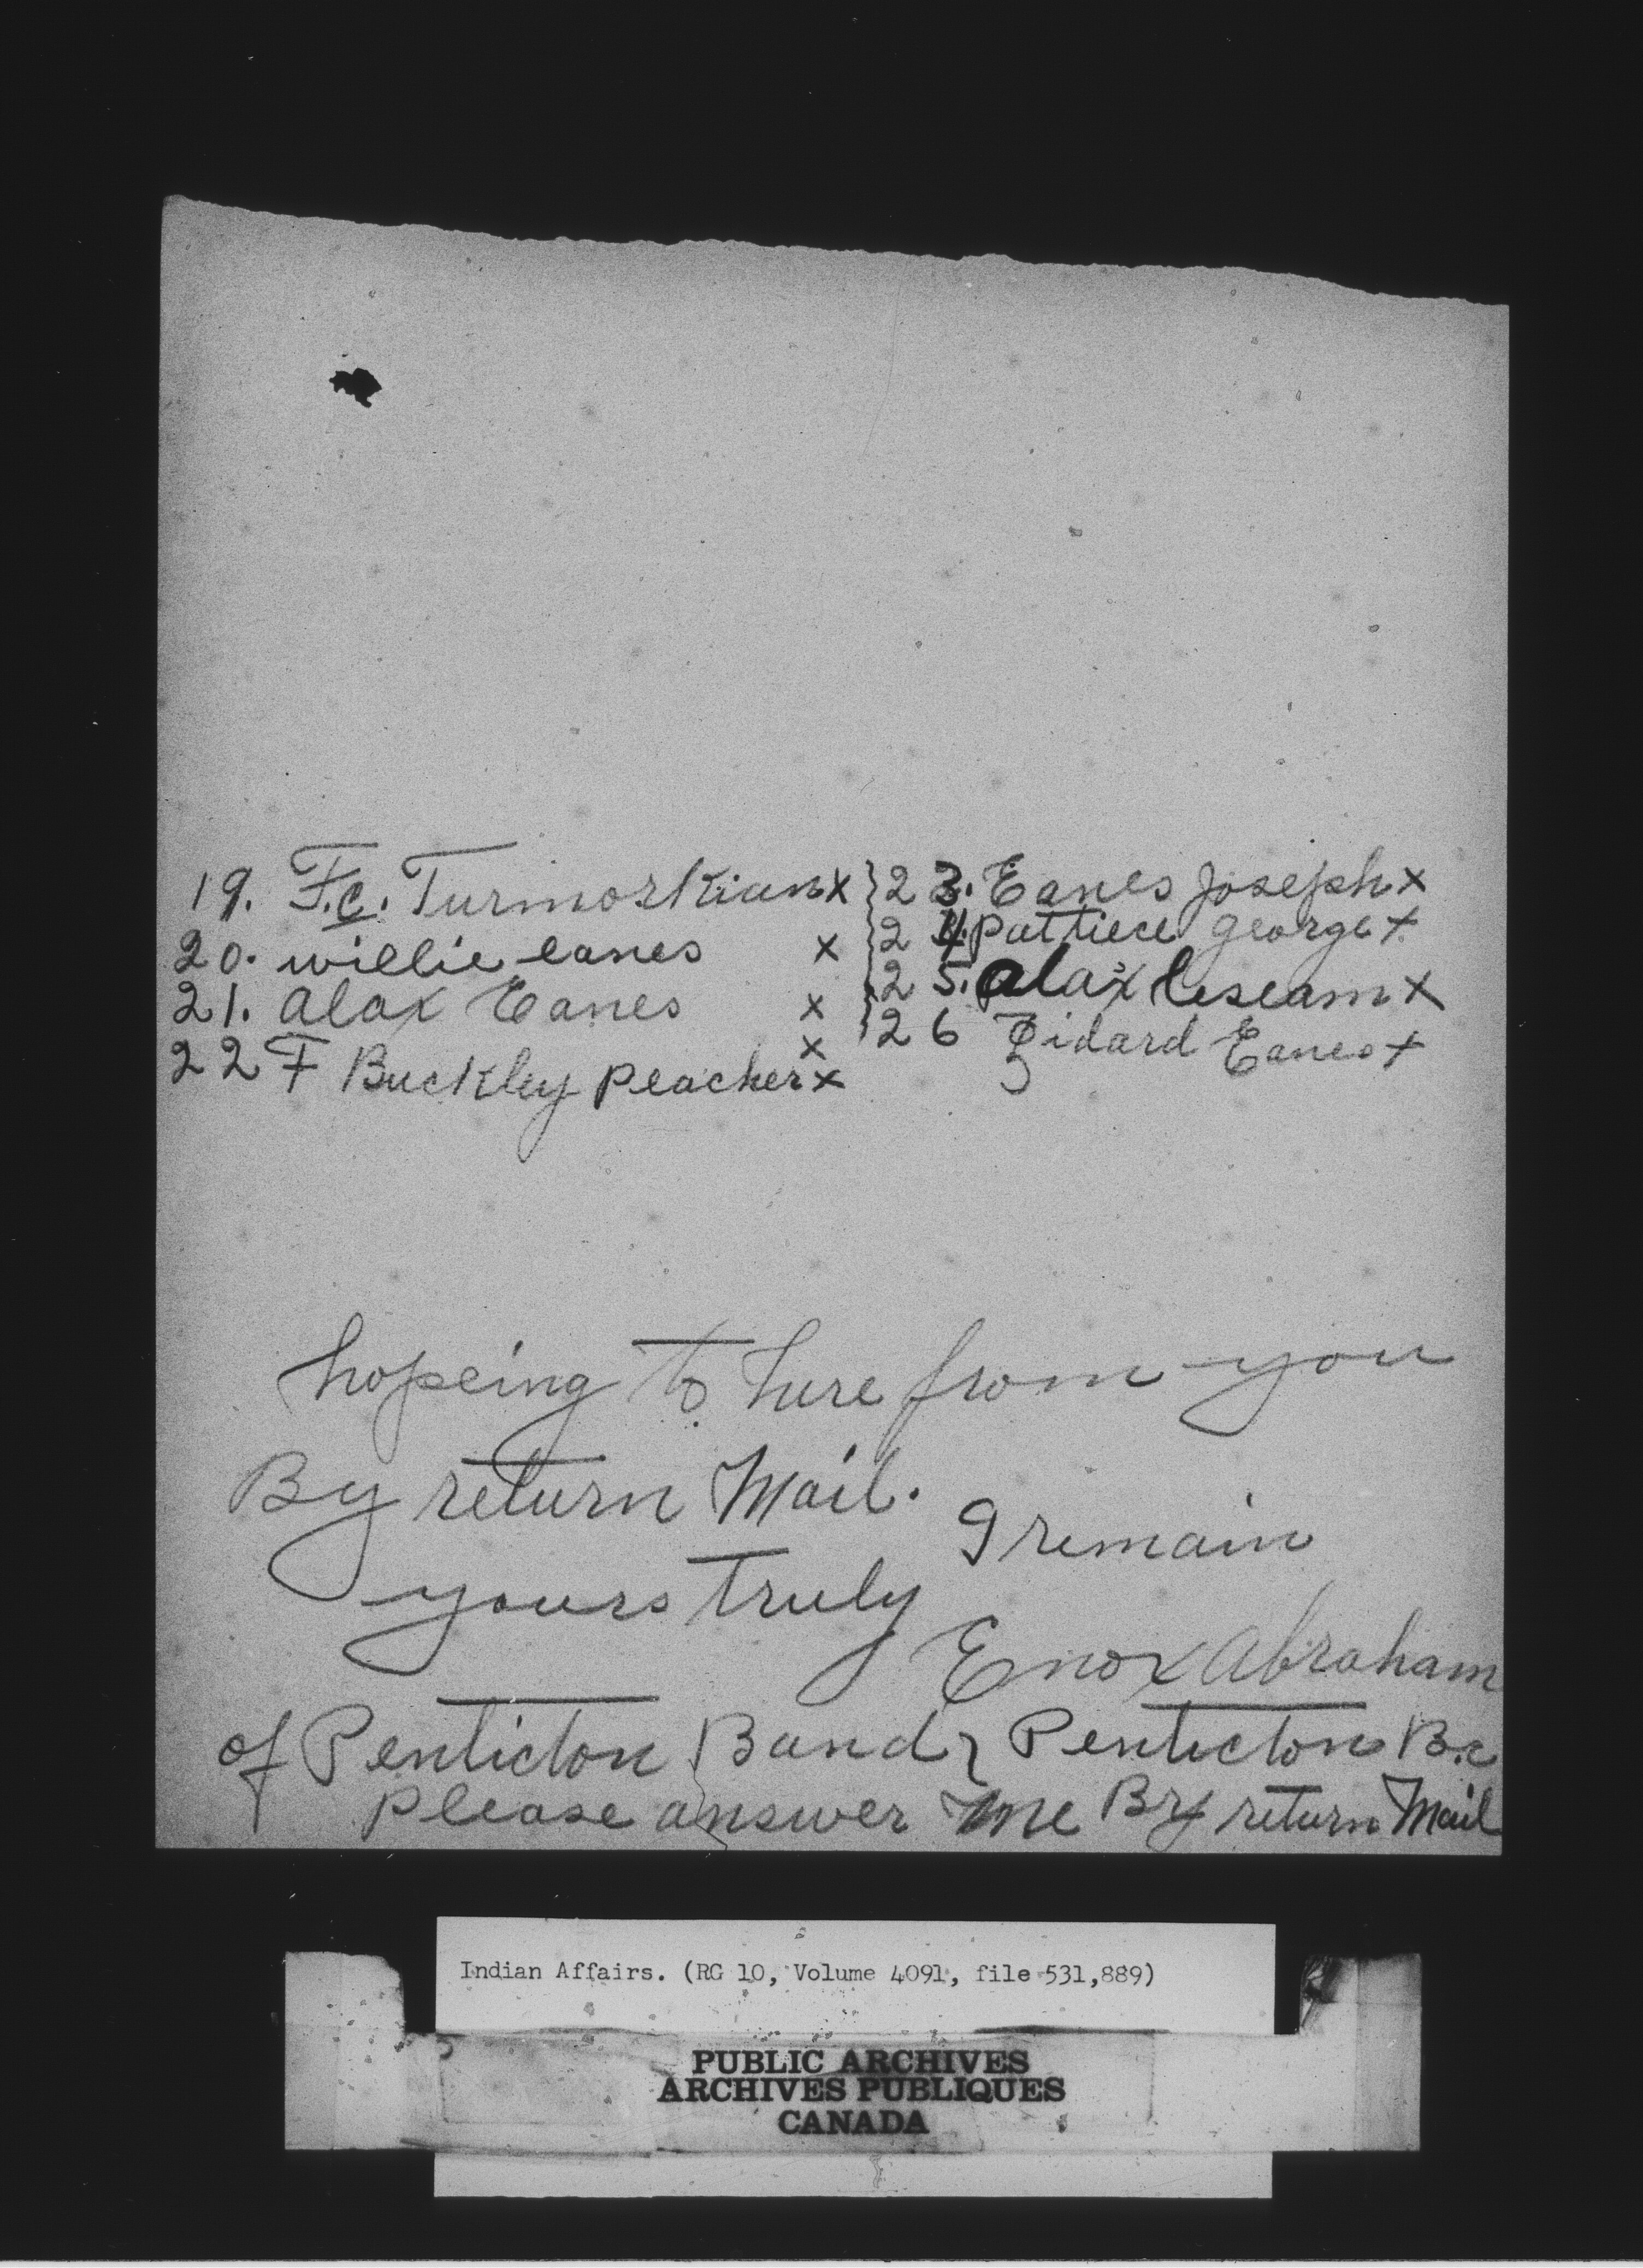 19. F.C. Turmorkian x } 23. Eanes Joseph x
20. willie eanes x } 24. Pattiece george x
21. alax Eanes x } 25. alax Leseam x
22 F Buckley Peacher x x } 26 Zidard Eanes x
hopeing to hure from you
By return Mail.
I remain
yours truly
Enox Abraham
of Penticton Band, Penticton B.c
Please answer me By return Mail
Indian Affairs. (RG 10, Volume 4091, file 531,889)
PUBLIC ARCHIVES
ARCHIVES PUBLIQUES
CANADA